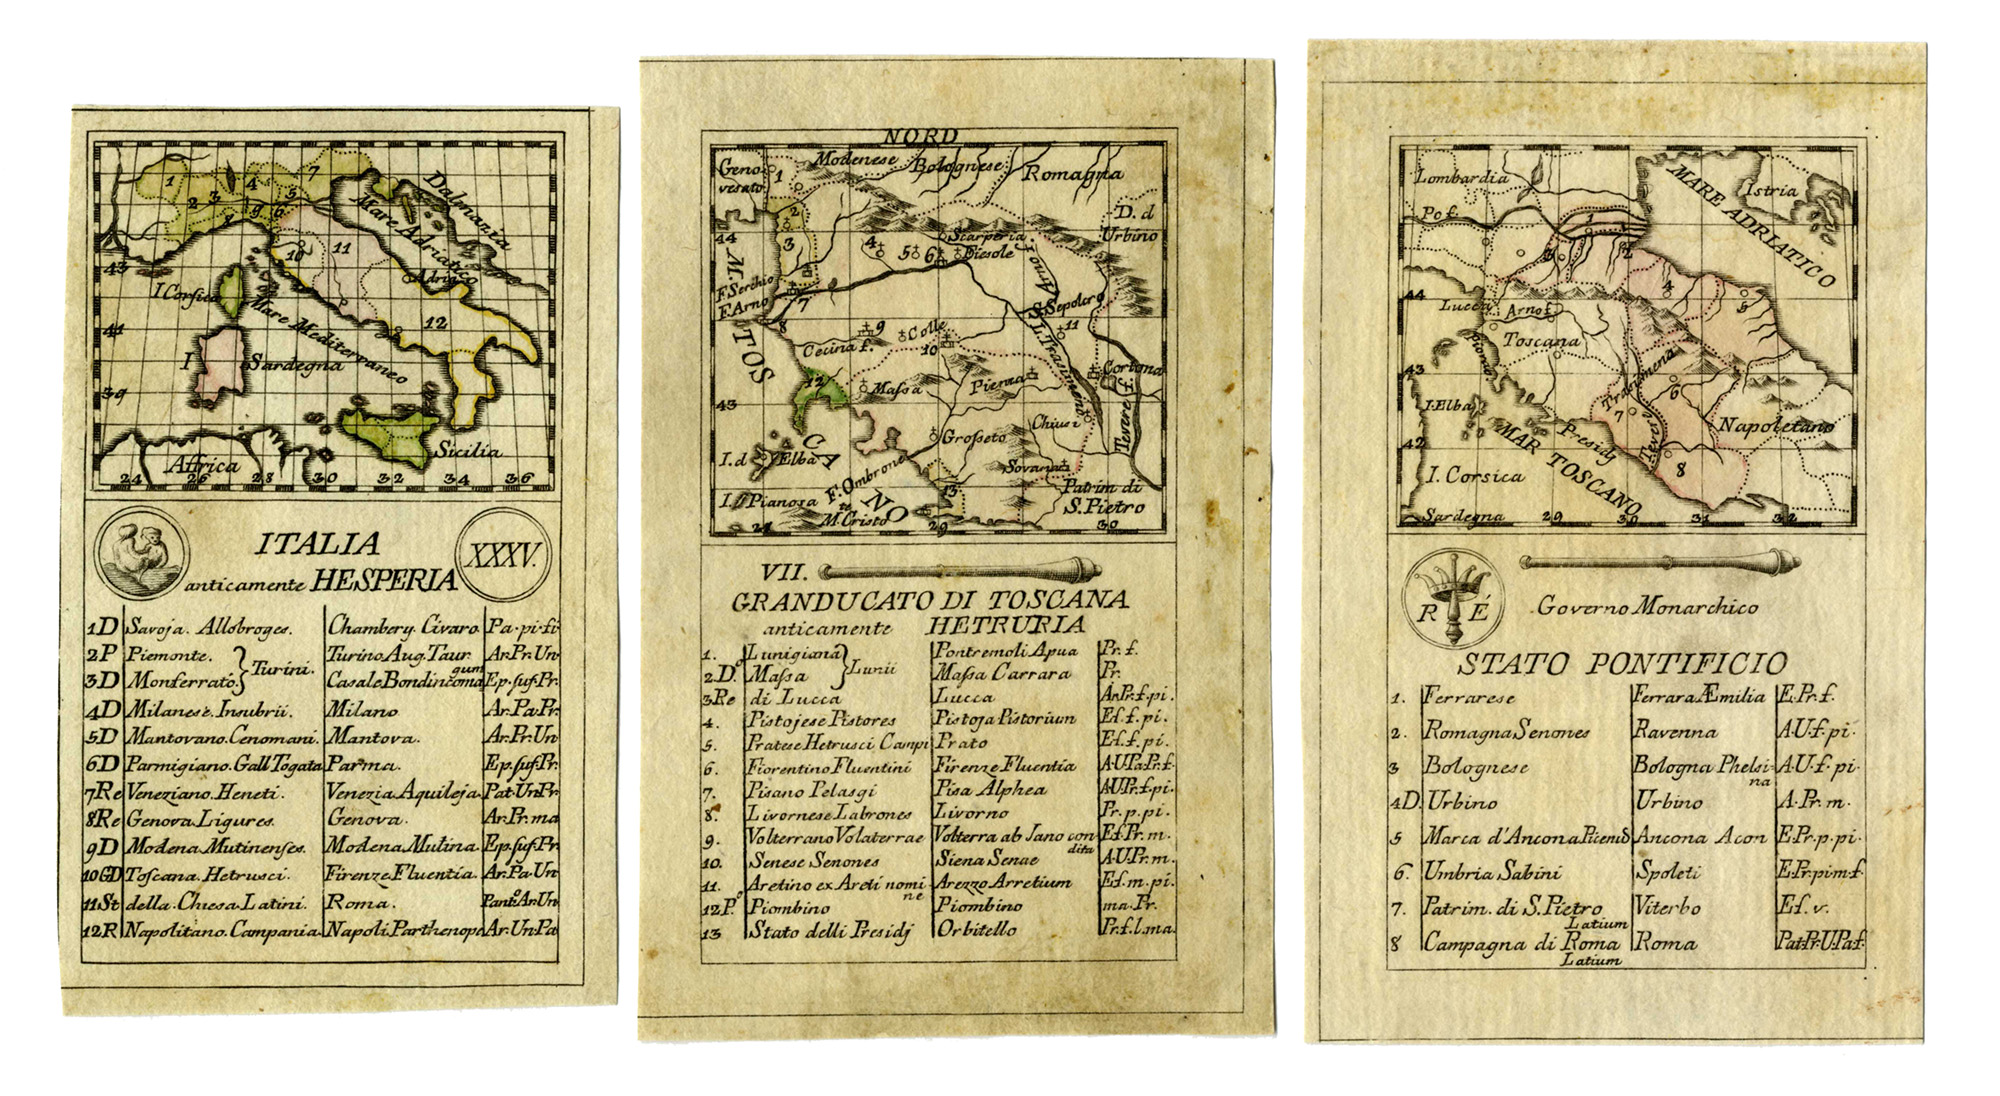 1
2
3
4
5
6
7
8
9
10
11
12
Dalmazia
Mare Adriatico
Adria
I Corsica
Mare Mediterraneo
I
Sardegna
Sicilia
Affrica
43
41
39
24 26 28 30 32 34 36
ITALIA
XXXV.
anticamente HESPERIA
1D Savoja. Allobroges. Chambery. Civaro Pa.pi.fi
2P Piemonte. Turini. Turino Aug. Taur Ar.Pr.Un
gum
3D Monferrato. Casale Bondincoma Ep.suf.Pr.
4D Milanese. Insubrii. Milano Ar.Pa.Pr.
5D Mantovano. Cenomani. Mantova. Ar.Pr.Un
6D Parmigiano. Gall Togata Parma. Ep.suf.Pr.
7Re Veneziano. Heneti. Venezia Aquileja Pat.Un.Pr
8Re Genova Ligures. Genova. Ar.Pr.ma
9D Modena Mutinenses. Modena Mutina. Ep.suf.Pr.
10GD Toscana. Hetrusci. Firenze Fluentia. Ar.Pa.Un
11St della Chiesa Latini. Roma. Ponto.Ar.Un
12R Napolitano. Campania Napoli Parthenope Ar.Un.Pa
NORD
Geno
vesato
Modenese
Bolognese
Romagna
D. d
Urbino
1
2
3
4
5
6
Scarperia
Fiesole
F. Serchio
F. Arno
7
8
Arno f.
S. Sepolcro
9
Colle
10
11
Cecina f.
L. Trasimeno
12
Massa
Pienza
Cortona
Chiusi
Tevere f.
Grosseto
Sovana
I. d Elba
F. Ombrone
I. Pianosa
M. Cristo
13
Patrim di
S. Pietro
M. TOSCANO
44
43
29
30
VII.
GRANDUCATO DI TOSCANA
anticamente HETRURIA
1. Lunigiana Lunii Pontremoli Apua Pr. f.
2.Do Massa Massa Carrara Pr.
3Re di Lucca Lucca Ar.Pr.f.pi.
4. Pistojese Pistores Pistoja Pistorium Ef.f.pi.
5. Pratese Hetrusci Campi Prato Ef.f.pi.
6. Fiorentino Fluentini Firenze Fluentia A.U.Pa.Pr.f.
7. Pisano Pelasgi Pisa Alphea A.U.Pr.f.pi.
8. Livornese Labrones Livorno Pr.p.pi.
9. Volterrano Volaterrae Volterra ab Jano con Ef.Pr.m.
dita
10. Senese Senones Siena Senae A.U.Pr.m.
11. Aretino ex Areti nomi Arezzo Arretium Ef.m.pi.
ne
12Po Piombino Piombino ma.Pr.
13 Stato delli Presidj Orbitello Pr.f.l.ma.
Lombardia
MARE ADRIATICO
Istria
Po f.
1
2
3
4
5
Lucca
Arno f.
Toscana
Piombino
Trasimena
6
7
8
Tevere f.
I. Elba
Napoletano
Presidj
MAR TOSCANO
I. Corsica
Sardegna
44
43
42
29 30 31 32
R É
Governo Monarchico
STATO PONTIFICIO
1. Ferrarese Ferrara Æmilia E.Pr.f.
2. Romagna Senones Ravenna A.U.f.pi.
3 Bolognese Bologna Phelsi A.U.f.pi.
na
4D. Urbino Urbino A.Pr.m.
5 Marca d'Ancona Picenũ Ancona Acon E.Pr.p.pi.
6. Umbria Sabini Spoleti E.Pr.pi.m.f.
7. Patrim. di S. Pietro Viterbo Ef.v.
Latium
8 Campagna di Roma Roma Pat.Pr.U.Pa.f.
Latium